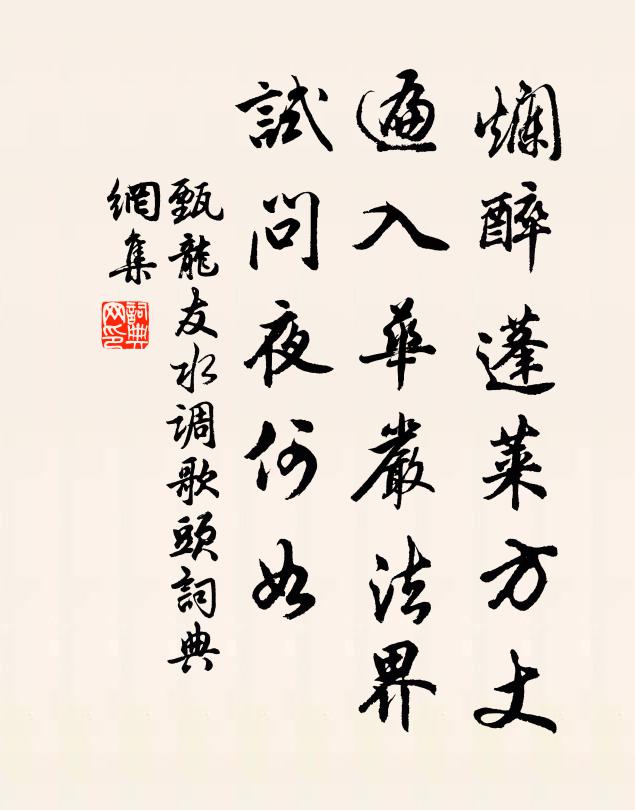 爛醉蓬萊方丈
遍入華嚴法界
試問夜何如
甄龍友水調歌頭詞典
網集
詞典
网印